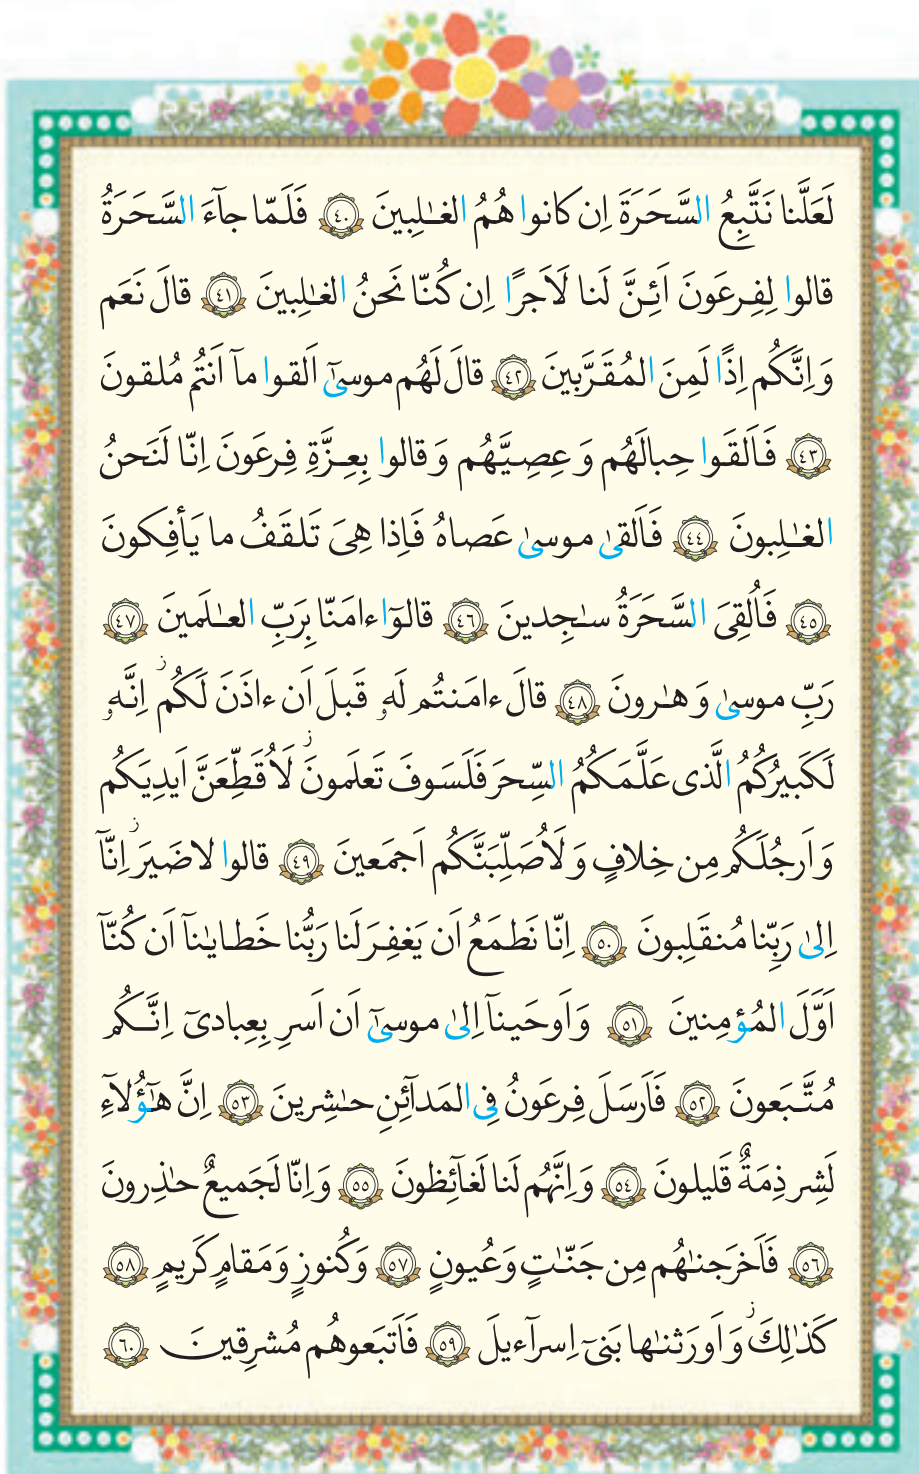 لَعَلَّنا نَتَّبِعُ السَّحَرَةَ اِن كانوا هُمُ الغـٰلِبينَ ﴿٤٠﴾ فَلَمّا جاۤءَ السَّحَرَةُ
قالوا لِفِرعَونَ اَئِنَّ لَنا لَاَجرًا اِن كُنّا نَحنُ الغـٰلِبينَ ﴿٤١﴾ قالَ نَعَم
وَ اِنَّكُم اِذًا لَمِنَ المُقَرَّبينَ ﴿٤٢﴾ قالَ لَهُم موسىٰۤ اَلقوا ماۤ اَنتُم مُلقونَ
﴿٤٣﴾ فَاَلقَوا حِبالَهُم وَ عِصِيَّهُم وَ قالوا بِعِزَّةِ فِرعَونَ اِنّا لَنَحنُ
الغـٰلِبونَ ﴿٤٤﴾ فَاَلقىٰ موسىٰ عَصاهُ فَاِذا هِىَ تَلقَفُ ما يَأفِكونَ
﴿٤٥﴾ فَاُلقِىَ السَّحَرَةُ سـٰجِدينَ ﴿٤٦﴾ قالوۤا ءامَنّا بِرَبِّ العـٰلَمينَ ﴿٤٧﴾
رَبِّ موسىٰ وَ هـٰرونَ ﴿٤٨﴾ قالَ ءامَنتُم لَهۥ قَبلَ اَن ءاذَنَ لَكُم ز اِنَّهۥ
لَكَبيرُكُمُ الَّذى عَلَّمَكُمُ السِّحرَ فَلَسَوفَ تَعلَمونَ ز لَاُقَطِّعَنَّ اَيدِيَكُم
وَ اَرجُلَكُم مِن خِلافٍ وَ لَاُصَلِّبَنَّكُم اَجمَعينَ ﴿٤٩﴾ قالوا لا ضَيرَ ز اِنّاۤ
اِلىٰ رَبِّنا مُنقَلِبونَ ﴿٥٠﴾ اِنّا نَطمَعُ اَن يَغفِرَ لَنا رَبُّنا خَطايـٰناۤ اَن كُنّاۤ
اَوَّلَ المُؤمِنينَ ﴿٥١﴾ وَ اَوحَيناۤ اِلىٰ موسىٰۤ اَن اَسرِ بِعِبادىۤ اِنَّكُم
مُتَّبَعونَ ﴿٥٢﴾ فَاَرسَلَ فِرعَونُ فِى المَداۤئِنِ حـٰشِرينَ ﴿٥٣﴾ اِنَّ هـٰۤؤُلاۤءِ
لَشِرذِمَةٌ قَليلونَ ﴿٥٤﴾ وَ اِنَّهُم لَنا لَغاۤئِظونَ ﴿٥٥﴾ وَ اِنّا لَجَميعٌ حـٰذِرونَ
﴿٥٦﴾ فَاَخرَجنـٰهُم مِن جَنّـٰتٍ وَ عُيونٍ ﴿٥٧﴾ وَ كُنوزٍ وَ مَقامٍ كَريمٍ ﴿٥٨﴾
كَذٰلِكَ ز وَ اَورَثنـٰها بَنىۤ اِسراۤءيلَ ﴿٥٩﴾ فَاَتبَعوهُم مُشرِقينَ ﴿٦٠﴾